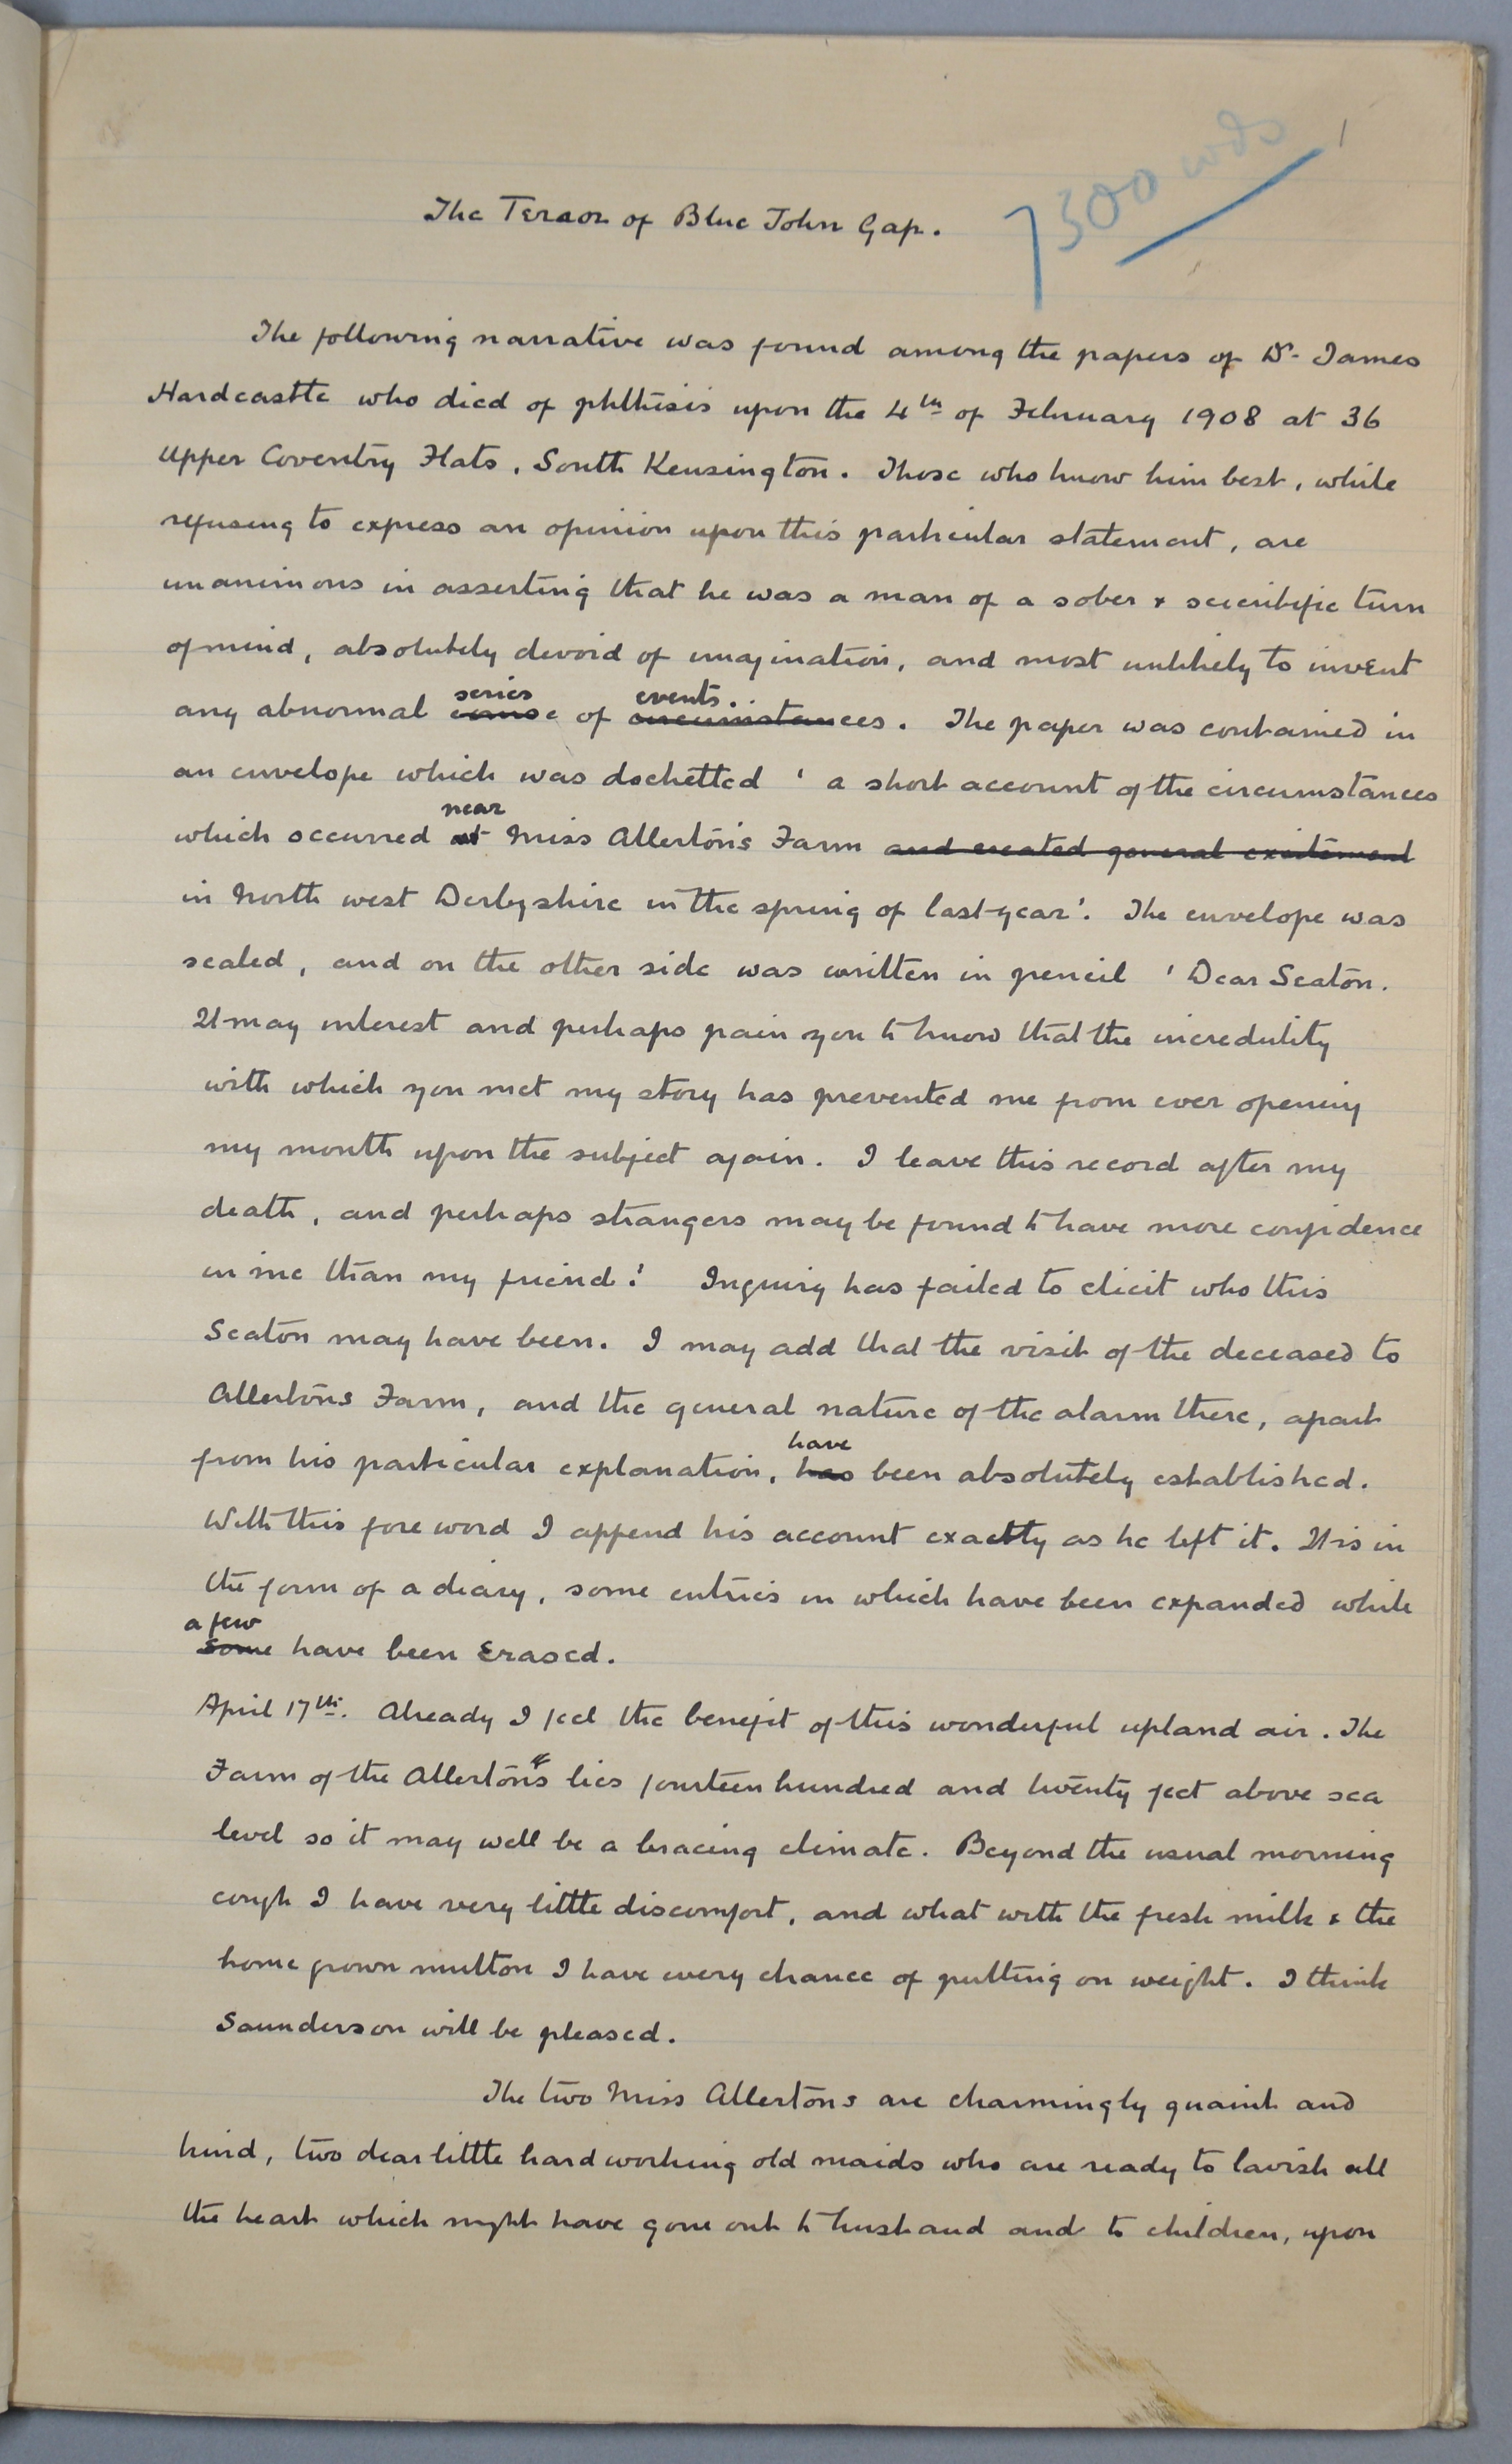 7300 wds
1
The Terror of Blue John Gap.
The following narrative was found among the papers of Dr. James
Hardcastle who died of phthisis upon the 4th of February 1908 at 36
Upper Coventry Flats, South Kensington. Those who knew him best, while
refusing to express an opinion upon this particular statement, are
unanimous in asserting that he was a man of a sober & scientific turn
of mind, absolutely devoid of imagination, and most unlikely to invent
series events.
any abnormal course of circumstances. The paper was contained in
an envelope which was docketted ' a short account of the circumstances
near
which occurred at Miss Allerton's Farm and created general excitement
in North west Derbyshire in the spring of last year'. The envelope was
sealed, and on the other side was written in pencil ' Dear Seaton.
It may interest and perhaps pain you to know that the incredulity
with which you met my story has prevented me from ever opening
my mouth upon the subject again. I leave this record after my
death, and perhaps strangers may be found to have more confidence
in me than my friend.' Inquiry has failed to elicit who this
Seaton may have been. I may add that the visit of the deceased to
Allerton's Farm, and the general nature of the alarm there, apart
have
from his particular explanation, has been absolutely established.
With this foreword I append his account exactly as he left it. It is in
the form of a diary, some entries in which have been expanded while
a few
some have been erased.
April 17th. Already I feel the benefit of this wonderful upland air. The
Farm of the Allertons lies fourteen hundred and twenty feet above sea
level so it may well be a bracing climate. Beyond the usual morning
cough I have very little discomfort, and what with the fresh milk & the
home grown mutton I have every chance of putting on weight. I think
Saunderson will be pleased.
The two Miss Allertons are charmingly quaint and
kind, two dear little hard working old maids who are ready to lavish all
the heart which might have gone out to husband and to children, upon